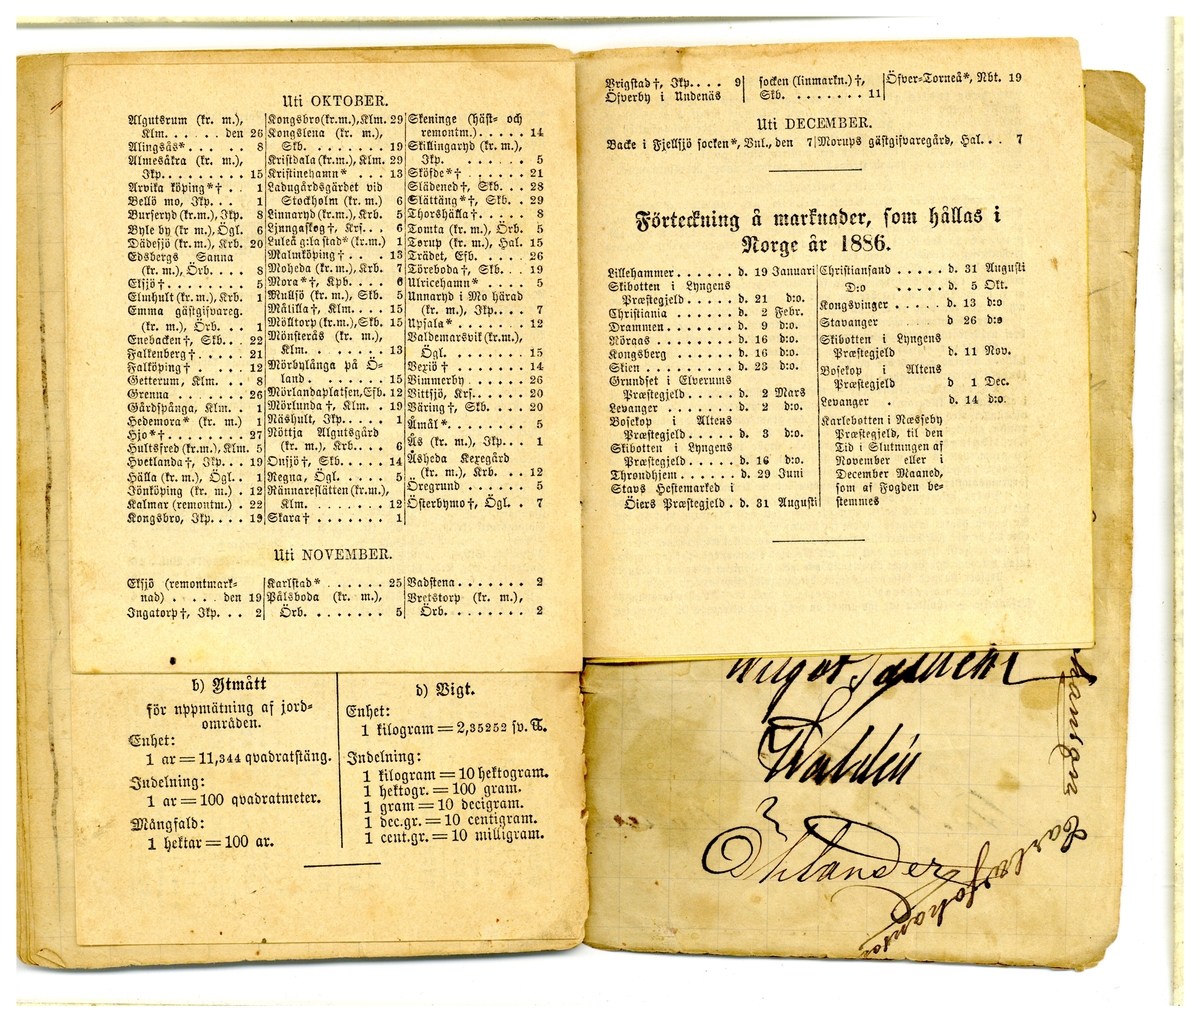 Uti OKTOBER.
Algutsrum (kr. m.),
Klm. . . . . . den 26
Alingsås* . . . 8
Almesåkra (kr. m.),
Jkp. . . . . . . . . 15
Arvika köping*† . . 1
Bellö mo, Jkp. . . 1
Burseryd (kr.m.), Jkp. 8
Byle by (kr.m.), Ögl. 6
Dädesjö (kr.m.), Krb. 20
Edsbergs Sanna
(kr. m.), Örb. . . . 8
Eksjö† . . . . . . . 5
Elmhult (kr.m.), Krb. 1
Emma gästgifvareg.
(kr. m.), Örb. . . 1
Enebacken†, Skb. . . 22
Falkenberg† . . . . 21
Falköping† . . . . 12
Getterum, Klm. . . 8
Grenna . . . . . . . 26
Gårdspånga, Klm. . . 1
Hedemora* (kr. m.) 1
Hjo*† . . . . . . . 27
Hultsfred (kr.m.), Klm. 5
Hvetlanda†, Jkp. . . 19
Hälla (kr. m.), Ögl. . 1
Jönköping (kr. m.) . 12
Kalmar (remontm.) . 22
Kongsbro, Jkp. . . . 19
Kongsbro(kr.m.), Klm. 29
Kongslena (kr. m.),
Skb. . . . . . . . . 19
Kristdala (kr.m.), Klm. 29
Kristinehamn* . . . 13
Ladugårdsgärdet vid
Stockholm (kr. m.) 6
Linnaryd (kr.m.), Krb. 5
Ljungaskog†, Krs. . . 6
Luleå g:la stad* (kr.m.) 1
Malmköping† . . . 13
Moheda (kr.m.), Krb. 7
Mora*†, Kpb. . . . 6
Mullsjö (kr. m.), Skb. 5
Målilla†, Klm. . . . 15
Mölltorp (kr.m.), Skb. 15
Mönsterås (kr. m.),
Klm. . . . . . . . 13
Mörbylånga på Ö-
land . . . . . . . . 15
Mörlandaplatsen, Efb. 12
Mörlunda†, Klm. . . 19
Näshult, Jkp. . . . . 1
Nöttja Algutsgård
(kr. m.), Krb. . . . 6
Onsjö†, Skb. . . . . 14
Regna, Ögl. . . . . 5
Rännareslätten (kr.m.),
Klm. . . . . . . . . 12
Skara† . . . . . . . 1
Skeninge (häst- och
remontm.) . . . . . 14
Skillingaryd (kr.m.),
Jkp. . . . . . . 5
Sköfde*† . . . . . . 21
Slädened†, Skb. . . 28
Slättäng*†, Skb. . . 29
Thorshälla† . . . . . 8
Tomta (kr. m.), Örb. 5
Torup (kr. m.), Hal. 15
Trädet, Efb. . . . . 26
Töreboda†, Skb. . . 19
Ulricehamn* . . . . 5
Unnaryd i Mo härad
(kr. m.), Jkp. . . . 7
Upsala* . . . . . . . 12
Valdemarsvik (kr.m.),
Ögl. . . . . . . . . 15
Vexiö† . . . . . . . 14
Vimmerby . . . . . 26
Vittsjö, Krs. . . . . 20
Väring†, Skb. . . . 20
Åmål* . . . . . . . 5
Ås (kr. m.), Jkp. . . 1
Åsheda Kexegård
(kr. m.), Krb. . . . 12
Öregrund . . . . . . 5
Österbymo†, Ögl. . 7
Uti NOVEMBER.
Eksjö (remontmark-
nad) . . . . . den 19
Ingatorp†, Jkp. . . . 2
Karlstad* . . . . . . 25
Pålsboda (kr. m.),
Örb. . . . . . . . . 5
Vadstena . . . . . . . 2
Vretstorp (kr. m.),
Örb. . . . . . . . . 2
b) Ytmått
för uppmätning af jord-
områden.
Enhet:
1 ar = 11,344 qvadratstäng.
Indelning:
1 ar = 100 qvadratmeter.
Mångfald:
1 hektar = 100 ar.
d) Vigt.
Enhet:
1 kilogram = 2,35252 sv. ℔.
Indelning:
1 kilogram = 10 hektogram.
1 hektogr. = 100 gram.
1 gram = 10 decigram.
1 dec.gr. = 10 centigram.
1 cent.gr. = 10 milligram.
Vrigstad†, Jkp. . . . 9
Öfverby i Undenäs
socken (linmarkn.) †,
Skb. . . . . . . . 11
Öfver-Torneå*, Nbt. 19
Uti DECEMBER.
Backe i Fjellsjö socken*, Vnl., den 7
Morups gästgifvaregård, Hal. . . 7
Förteckning å marknader, som hållas i
Norge år 1886.
Lillehammer . . . . . . d. 19 Januari
Skibotten i Lyngens
Præstegjeld . . . . . d. 21 d:o.
Christiania . . . . . . d. 2 Febr.
Drammen . . . . . . . d. 9 d:o.
Röraas . . . . . . . . d. 16 d:o.
Kongsberg . . . . . . d. 16 d:o.
Skien . . . . . . . . . d. 23 d:o.
Grundset i Elverums
Præstegjeld . . . . . d. 2 Mars
Levanger . . . . . . . d. 2 d:o.
Bosekop i Altens
Præstegjeld . . . . . d. 3 d:o.
Skibotten i Lyngens
Præstegjeld . . . . . d. 16 d:o.
Throndhjem . . . . . . d. 29 Juni
Stavs Hestemarked i
Öiers Præstegjeld . d. 31 Augusti
Christiansand . . . . . d. 31 Augusti
D:o . . . . . d. 5 Okt.
Kongsvinger . . . . d. 13 d:o
Stavanger d 26 d:o
Skibotten i Lyngens
Præstegjeld . . . d. 11 Nov.
Bosekop i Altens
Præstegjeld d 1 Dec.
Levanger . . d. 14 d:o.
Karlebotten i Næsseby
Præstegjeld, til den
Tid i Slutningen af
November eller i
December Maaned,
som af Fogden be-
stemmes
Waldén
Öhlander
Carl Johanson